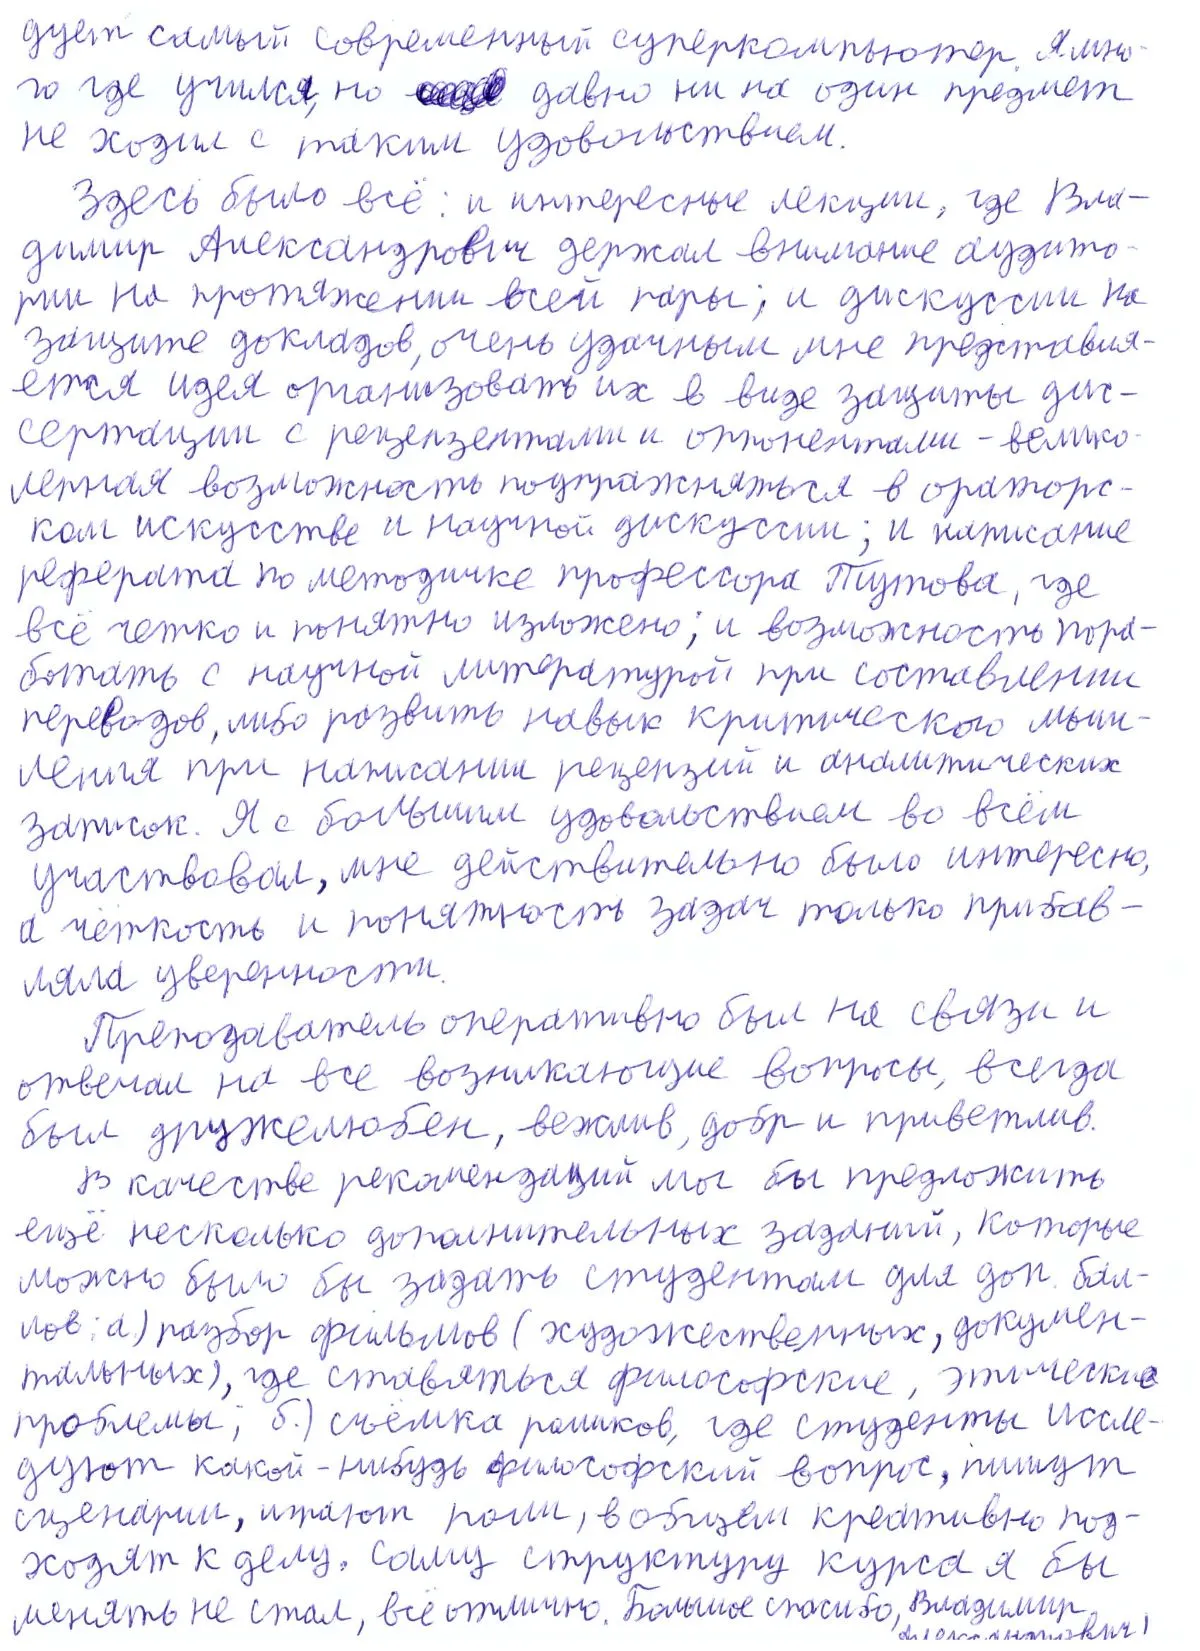 дует самый современный суперкомпьютер. Я мно-
го где учился, но давно ни на один предмет
не ходил с таким удовольствием.
Здесь было всё: и интересные лекции, где Вла-
димир Александрович держал внимание аудито-
рии на протяжении всей пары; и дискуссии на
защите докладов, очень удачным мне представля-
ется идея организовать их в виде защиты дис-
сертации с рецензентами и оппонентами - велико-
лепная возможность поупражняться в ораторс-
ком искусстве и научной дискуссии; и написание
реферата по методичке профессора Тутова, где
всё четко и понятно изложено; и возможность пора-
ботать с научной литературой при составлении
переводов, либо развить навык критического мыш-
ления при написании рецензий и аналитических
записок. Я с большим удовольствием во всём
участвовал, мне действительно было интересно,
а чёткость и понятность задач только прибав-
ляла уверенности.
Преподаватель оперативно был на связи и
отвечал на все возникающие вопросы, всегда
был дружелюбен, вежлив, добр и приветлив.
В качестве рекомендаций мог бы предложить
ещё несколько дополнительных заданий, которые
можно было бы задать студентам для доп. бал-
лов: а.) разбор фильмов (художественных, докумен-
тальных), где ставяться философские, этические
проблемы; б.) съёмка роликов, где студенты иссле-
дуют какой-нибудь философский вопрос, пишут
сценарии, играют роли, в общем креативно под-
ходят к делу. Саму структуру курса я бы
менять не стал, всё отлично. Большое спасибо, Владимир
Александрович!